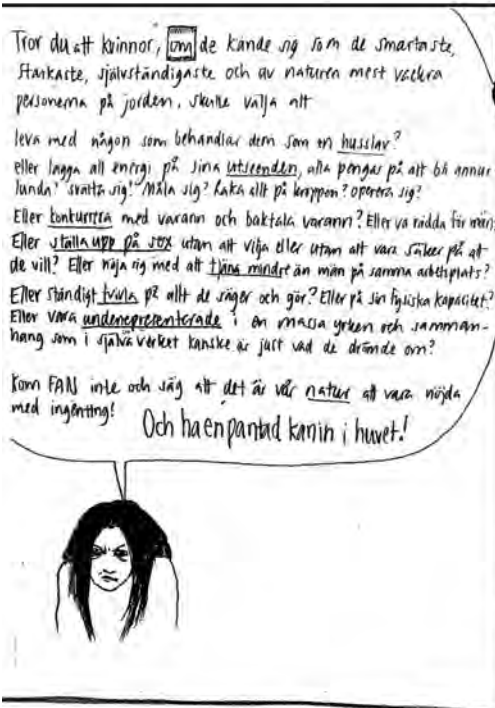 Tror du att kvinnor, om de kände sig som de smartaste,
starkaste, självständigaste och av naturen mest vackra
personerna på jorden, skulle välja att
leva med någon som behandlar dem som en husslav?
eller lägga all energi på sina utseenden, alla pengar på att bli annor
lunda? svälta sig? Måla sig? Raka allt på kroppen? operera sig?
Eller konkurrera med varann och baktala varann? Eller va rädda för män?
Eller ställa upp på sex utan att vilja eller utan att vara säker på att
de vill? Eller nöja sig med att tjäna mindre än män på samma arbetsplats?
Eller ständigt tvivla på allt de säger och gör? Eller på sin fysiska kapacitet?
Eller vara underrepresenterade i en massa yrken och samman-
hang som i själva verket kanske är just vad de drömde om?
Kom FAN inte och säg att det är vår natur att vara nöjda
med ingenting!
Och ha en pantad kanin i huvet!